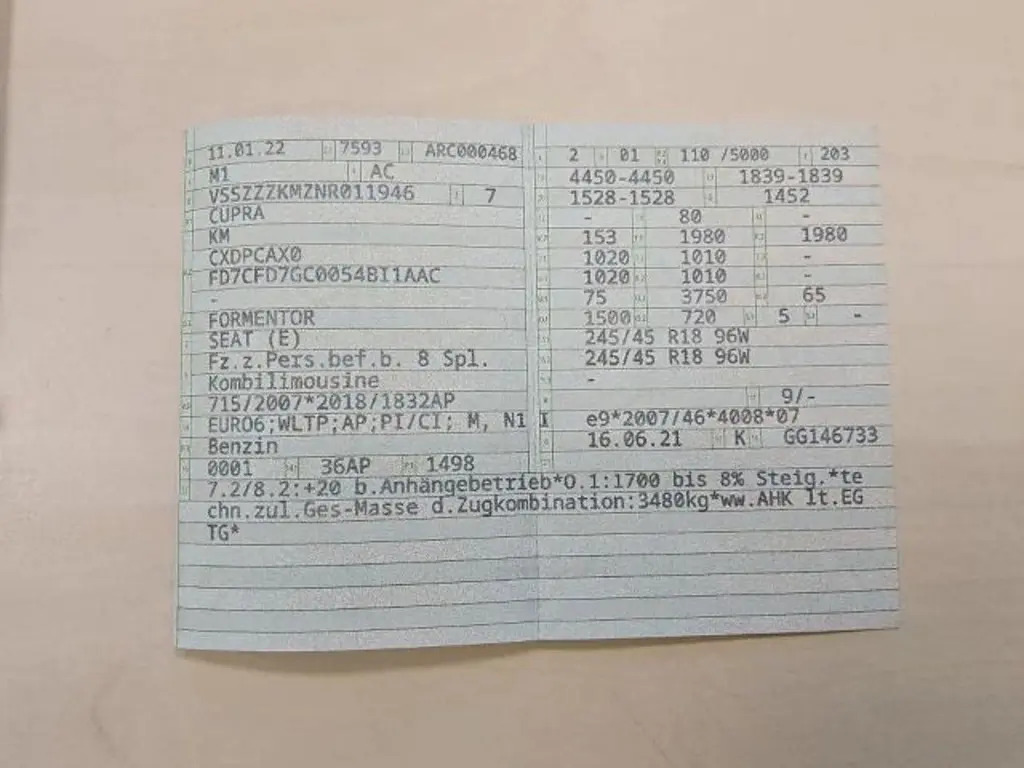 11.01.22 7593 ARC000468
M1 AC
VSSZZZKMZNR011946 7
CUPRA
KM
CXDPCAX0
FD7CFD7GC0054BI1AAC
-
FORMENTOR
SEAT (E)
Fz.z.Pers.bef.b. 8 Spl.
Kombilimousine
715/2007*2018/1832AP
EURO6;WLTP;AP;PI/CI; M, N1 I
Benzin
0001 36AP 1498
2 01 110 /5000 203
4450-4450 1839-1839
1528-1528 1452
- 80 -
153 1980 1980
1020 1010 -
1020 1010 -
75 3750 65
1500 720 5 -
245/45 R18 96W
245/45 R18 96W
-
9/-
e9*2007/46*4008*07
16.06.21 K GG146733
7.2/8.2:+20 b.Anhängebetrieb*O.1:1700 bis 8% Steig.*te
chn.zul.Ges-Masse d.Zugkombination:3480kg*ww.AHK lt.EG
TG*